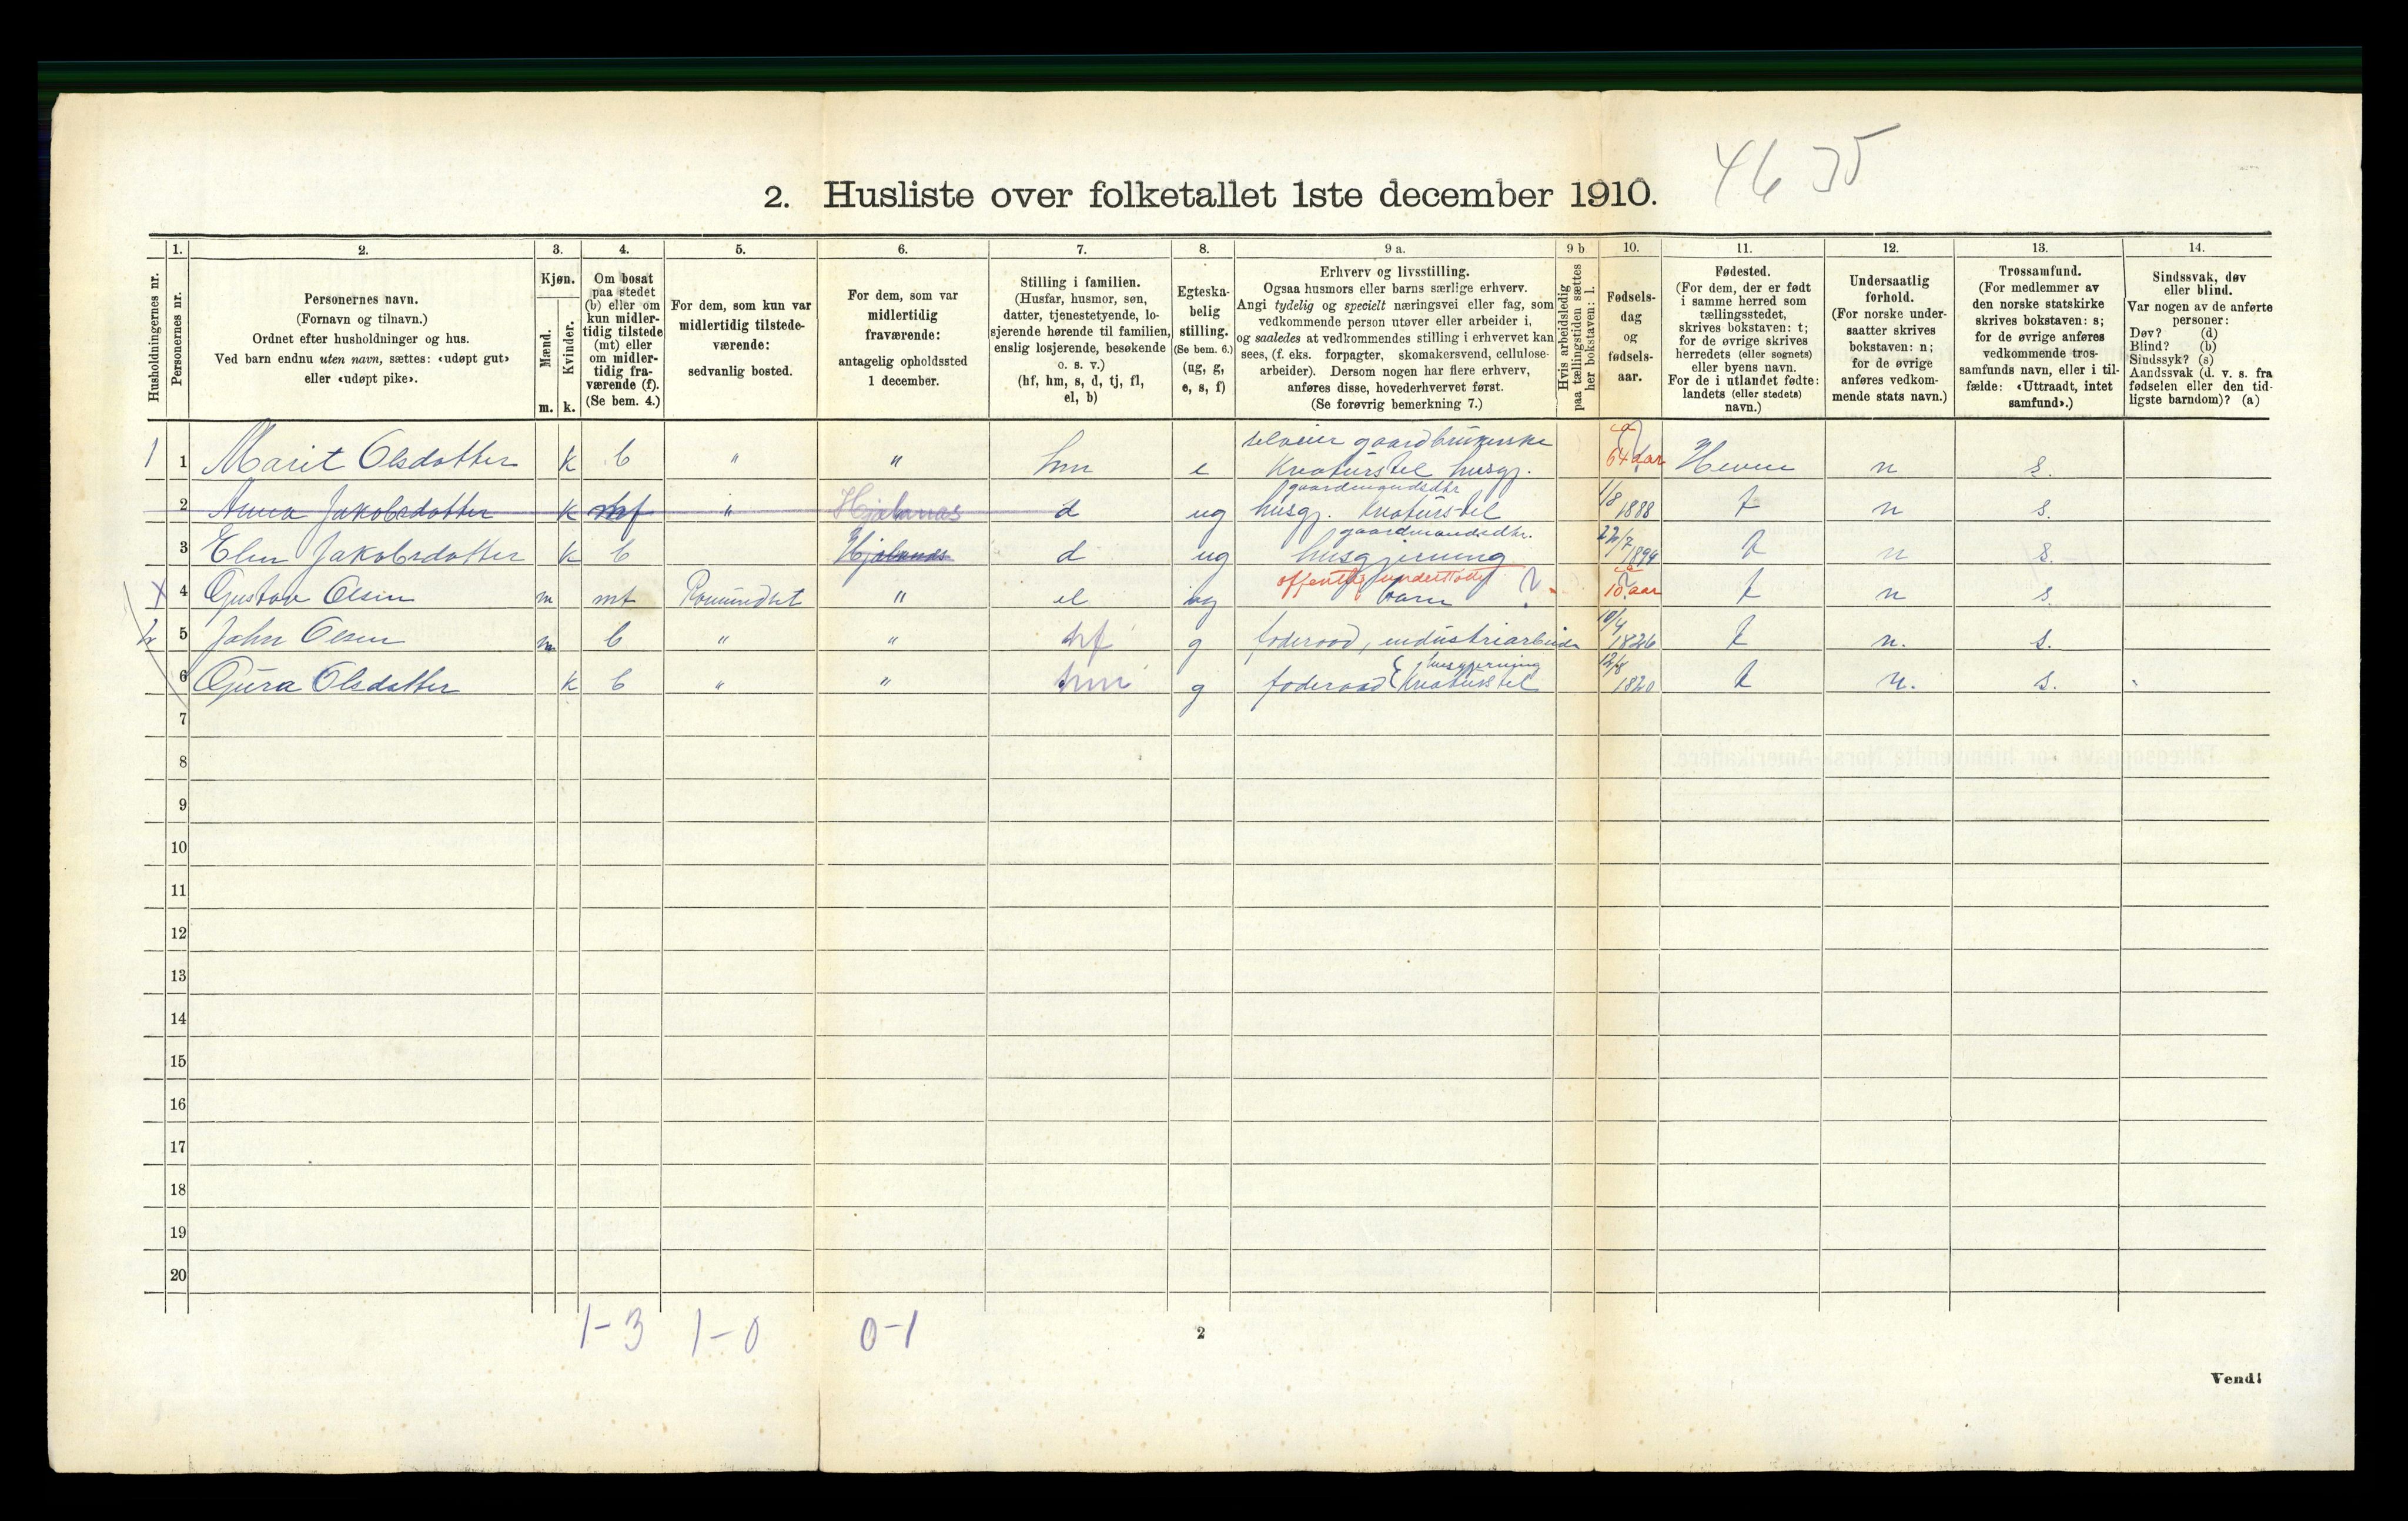 46 35
2. Husliste over folketallet 1ste december 1910.
Husholdningernes nr.
1.
Personernes nr.
2.
Personernes navn.
(Fornavn og tilnavn.)
Ordnet efter husholdninger og hus.
Ved barn endnu uten navn, sættes: «udøpt gut»
eller «udøpt pike».
3.
Kjøn.
Mænd.
Kvinder.
m. k.
4.
Om bosat
paa stedet
(b) eller om
kun midler-
tidig tilstede
(mt) eller
om midler-
tidig fra-
værende (f).
(Se bem. 4.)
5.
For dem, som kun var
midlertidig tilstede-
værende:
sedvanlig bosted.
6.
For dem, som var
midlertidig
fraværende:
antagelig opholdssted
1 december.
7.
Stilling i familien.
(Husfar, husmor, søn,
datter, tjenestetyende, lo-
sjerende hørende til familien,
enslig losjerende, besøkende
o. s. v.)
(hf, hm, s, d, tj, fl,
el, b)
8.
Egteska-
belig
stilling.
(Se bem. 6.)
(ug, g,
e, s, f)
9 a.
Erhverv og livsstilling.
Ogsaa husmors eller barns særlige erhverv.
Angi tydelig og specielt næringsvei eller fag, som
vedkommende person utøver eller arbeider i,
og saaledes at vedkommendes stilling i erhvervet kan
sees, (f. eks. forpagter, skomakersvend, cellulose-
arbeider). Dersom nogen har flere erhverv,
anføres disse, hovederhvervet først.
(Se forøvrig bemerkning 7.)
9 b
Hvis arbeidsledig
paa tællingstiden sættes
her bokstaven: l.
10.
Fødsels-
dag
og
fødsels-
aar.
11.
Fødested.
(For dem, der er født
i samme herred som
tællingsstedet,
skrives bokstaven: t;
for de øvrige skrives
herredets (eller sognets)
eller byens navn.
For de i utlandet fødte:
landets (eller stedets)
navn.)
12.
Undersaatlig
forhold.
(For norske under-
saatter skrives
bokstaven: n;
for de øvrige
anføres vedkom-
mende stats navn.)
13.
Trossamfund.
(For medlemmer av
den norske statskirke
skrives bokstaven: s;
for de øvrige anføres
vedkommende tros-
samfunds navn, eller i til-
fælde: «Uttraadt, intet
samfund».)
14.
Sindssvak, døv
eller blind.
Var nogen av de anførte
personer:
Døv? (d)
Blind? (b)
Sindssyk? (s)
Aandssvak (d. v. s. fra
fødselen eller den tid-
ligste barndom)? (a)
selveier gaardbrukerske ca
1 1 Marit Olsdatter k b " " hm e Kreaturstel husgj. 64 aar Heven n s.
gaardmandsdtr 1/8
2 Anna Jakobsdatter k mf " Hjelmnas d ug husgj. Kreaturstel 1888 t n s.
gaardmandsdtr. 22/7
3 Elen Jakobsdatter k b d ug husgjerning 1894 t n s.
offentlig understøttet ? ca
x 4 Gustav Olsen m mt Romundset " el ug barn 10 aar t n s.
10/4
2 5 John Olsen m b " " hf g foderaad, industriarbeider 1826 t n. s.
& husgjerning 12/8
6 Gura Olsdatter k b " " hm g foderaad Kreaturstel 1820 t n. s.
7
8
9
10
11
12
13
14
15
16
17
18
19
20
1-3 1-0 0-1
2
Vend!